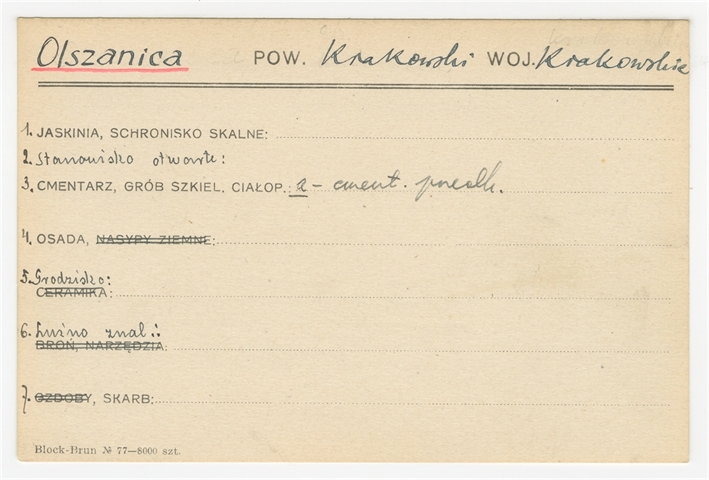 Olszanica POW. Krakowski WOJ. Krakowskie
1. JASKINIA, SCHRONISKO SKALNE:
2. Stanowisko otwarte:
3. CMENTARZ, GRÓB SZKIEL. CIAŁOP.: a - cment.
4. OSADA, NASYPY ZIEMNE:
5. Grodzisko:
CERAMIKA:
6. Luźno znal.:
BROŃ, NARZĘDZIA:
7. OZDOBY, SKARB:
Block-Brun № 77—8000 szt.